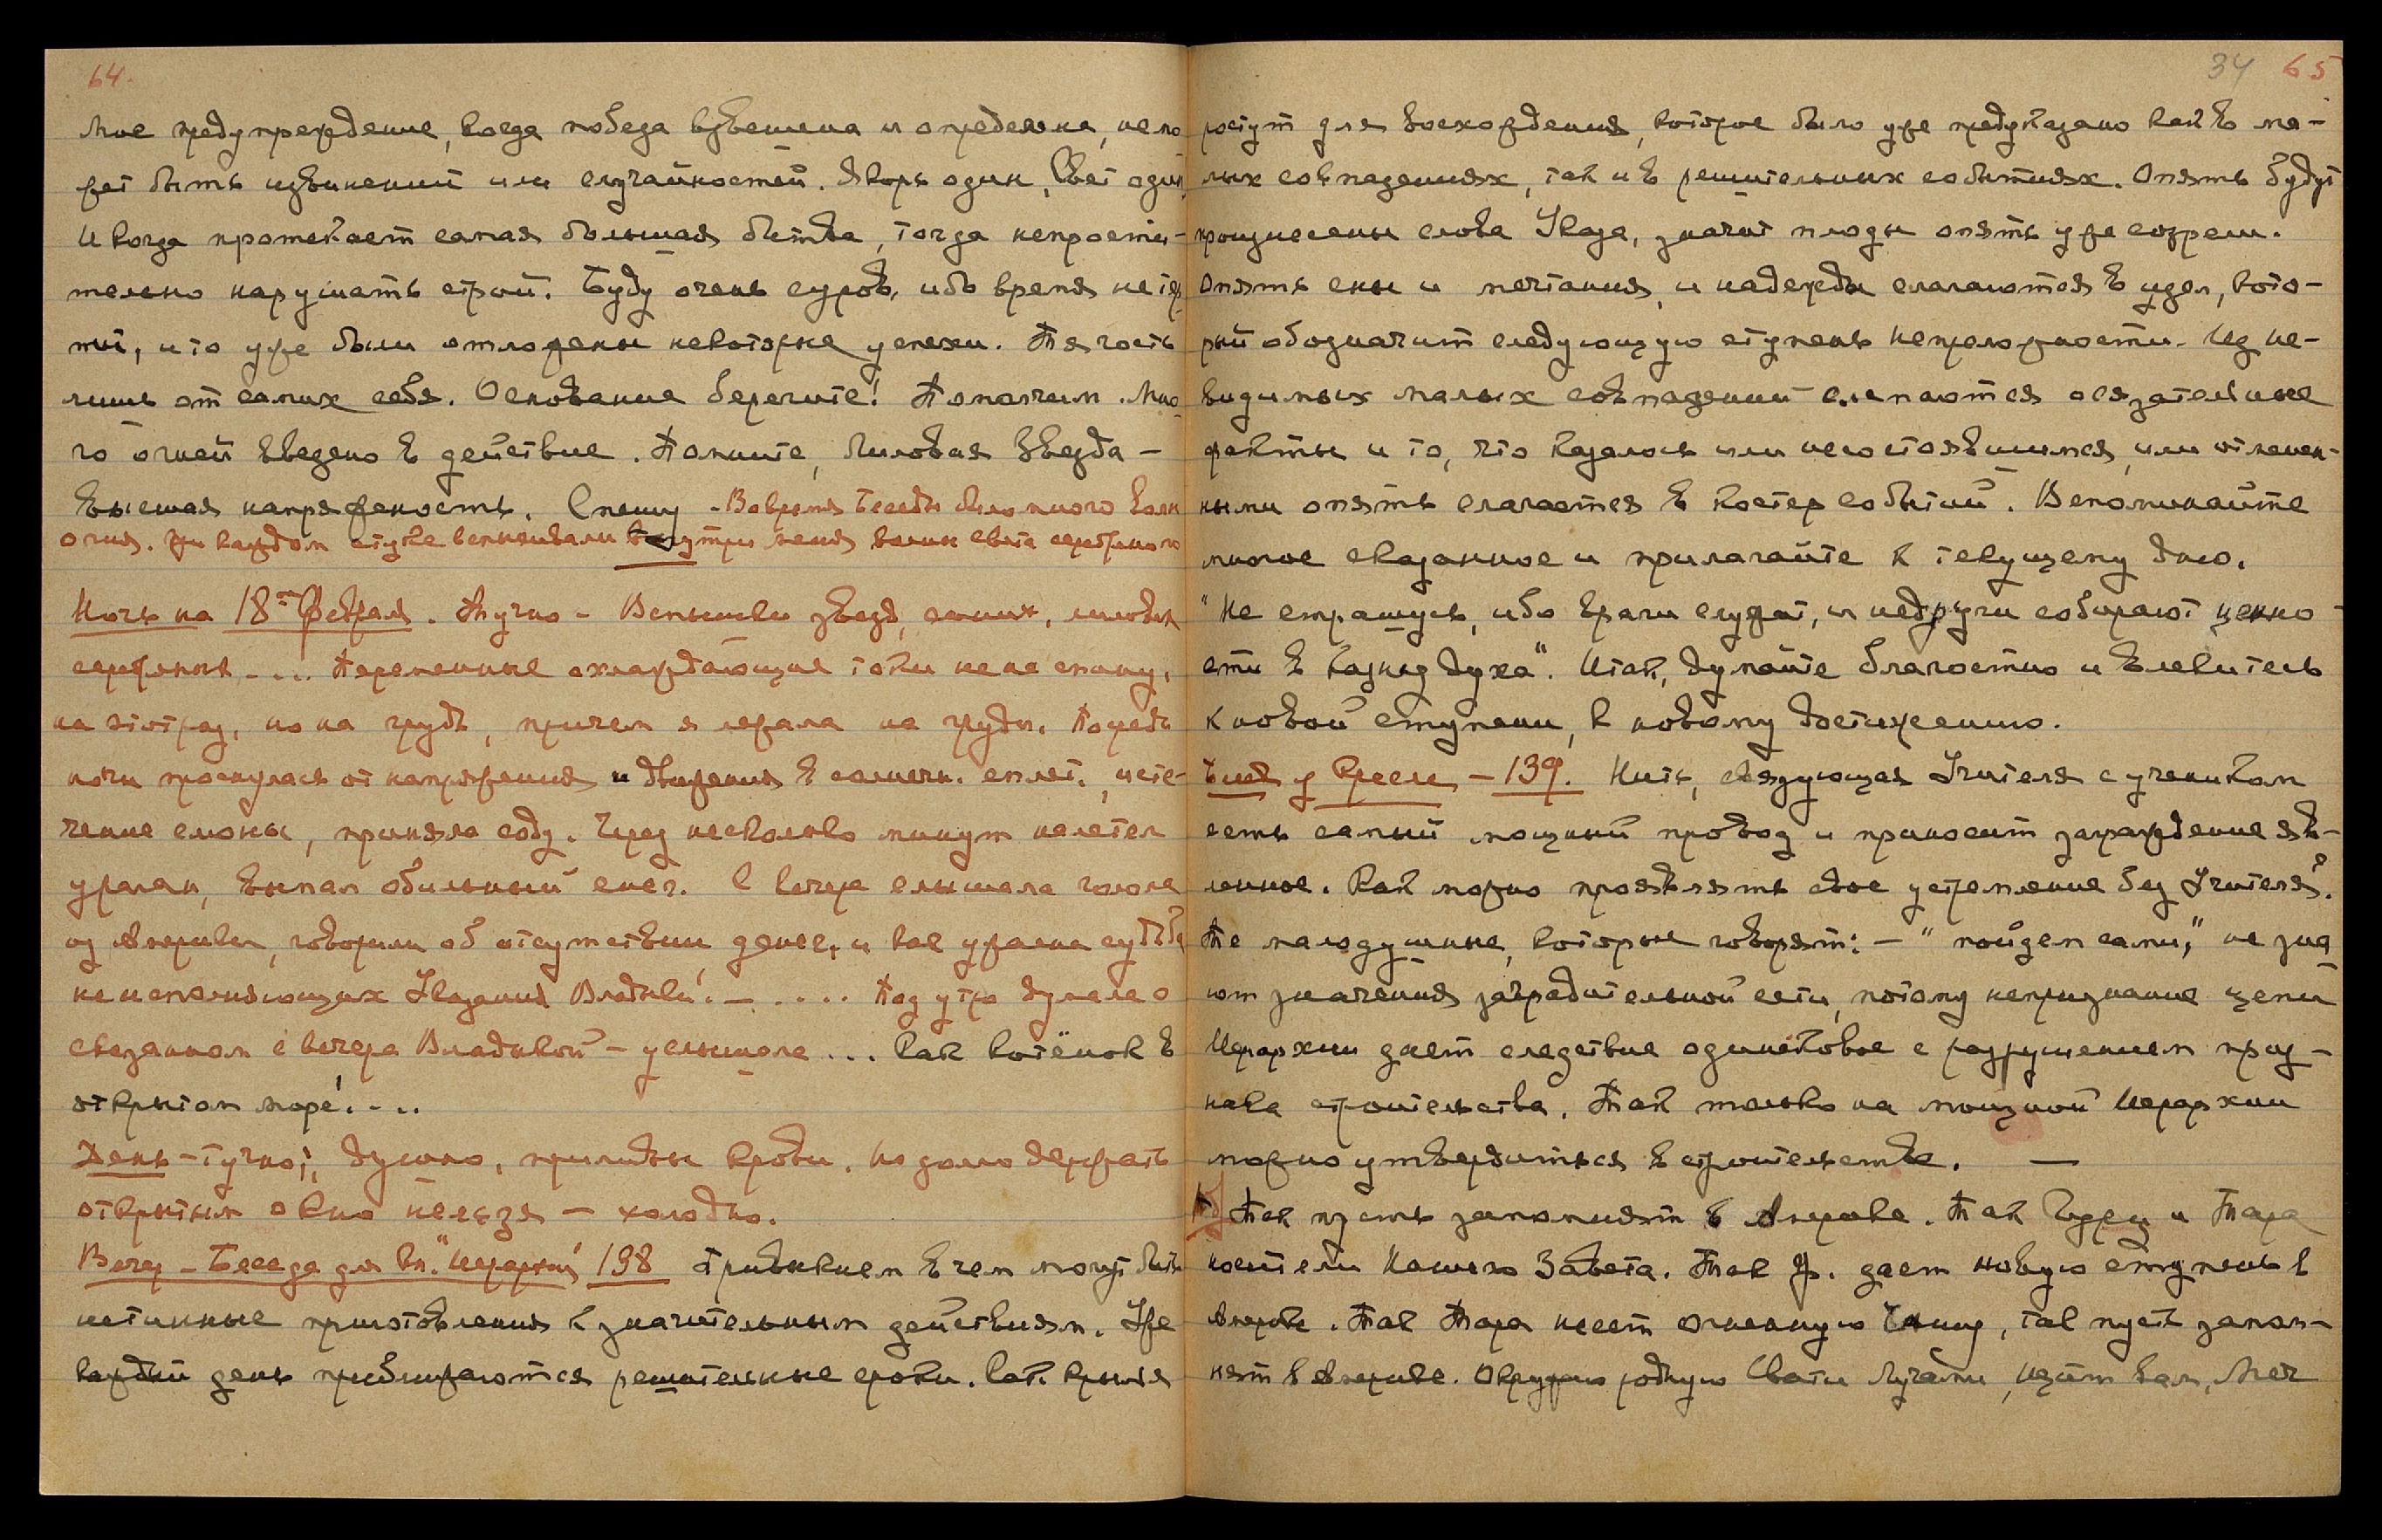 64.
Мое предупреждение, когда победа взвешена и определена, не мо-
жет быть извинений или случайностей. Якорь один, Свет один,
И когда протекает самая большая битва, тогда непрости-
тельно нарушать строй. Буду очень суров, ибо время не тер-
пит, и то уже были отложены некоторые успехи. Тягость
лишь от самих себя. Основание берегите! Помолчим. Мно-
го огней введено в действие. Помните, Лиловая Звезда —
высшая напряженность. Спешу - Во время Беседы было много
огня. При каждом стуке вспыхивали внутри меня света серебряного
Ночь на 18ое Февраля. Тучно - Вспышки звезд, синих, лиловых
серебряных - ... Переменные охлаждающие токи не на спину,
на этот раз, но на грудь, причем я лежала на груди. Посреди
ночи проснулась от напряжения и движения в солнечн. сплет., исте-
чение слюны, приняла соду. Через несколько минут налетел
ураган, выпал обильный снег. С вечера слышала голоса
из Америки, говорили об отсутствии денег, и как ужасна судьба
не исполняющих Указания Владыки! - . . . . Под утро думала о
сказанном с вечера Владыкой - услышала ... Как котёнок в
открытом море! - ..
День - тучно; душно, приливы крови. Но долго держать
открытым окно нельзя — холодно.
Вечер - Беседа для кн. "Иерархия" 138 Привыкнем в чем могут быть
истинные приготовления к значительным действиям. Уже
каждый день приближаются решительные сроки. Как крылья
34 65
растут для восхождения, которое было уже предуказано как в ма-
лых совпадениях, так и в решительных событиях. Опять будут
произнесены слова Указа, значит плоды опять уже созрели.
Опять сны и мечтания, и надежды слагаются в удел, кото-
рый обозначит следующую ступень непреложности. Из не-
видимых малых совпадений слепаются осязательные
факты и то, что казалось или несостоявшимся, или отменен-
ным опять слагается в костер событий. Вспоминайте
многое сказанное и прилагайте к текущему дню.
"Не страшусь, ибо враги служат, и недруги собирают ценно-
сти в казну духа". Итак, думайте благостно и явитесь
к новой ступени, к новому достижению.
- 139. Нить, связующая Учителя с учеником
есть самый мощный провод и приносит заграждение яв-
ленное. Как можно проявлять свое устремление без Учителя?
Те малодушные, которые говорят: — "пойдем сами," не зна-
ют значения заградительной сети, потому непризнание цепи
Иерархии дает следствие одинаковое с разрушением приз-
нака строительства. Так только на мощной Иерархии
можно утвердиться в строительстве. —
Так пусть запомнят в Америке. Так Гуру и Тара
носители Нашего Завета. Так Ф. дает новую ступень в
Америке. Так Тара несет Огненную Чашу, так пусть запом-
нят в Америке. Окружаю родную Свати Лучами, Щит вам, Меч